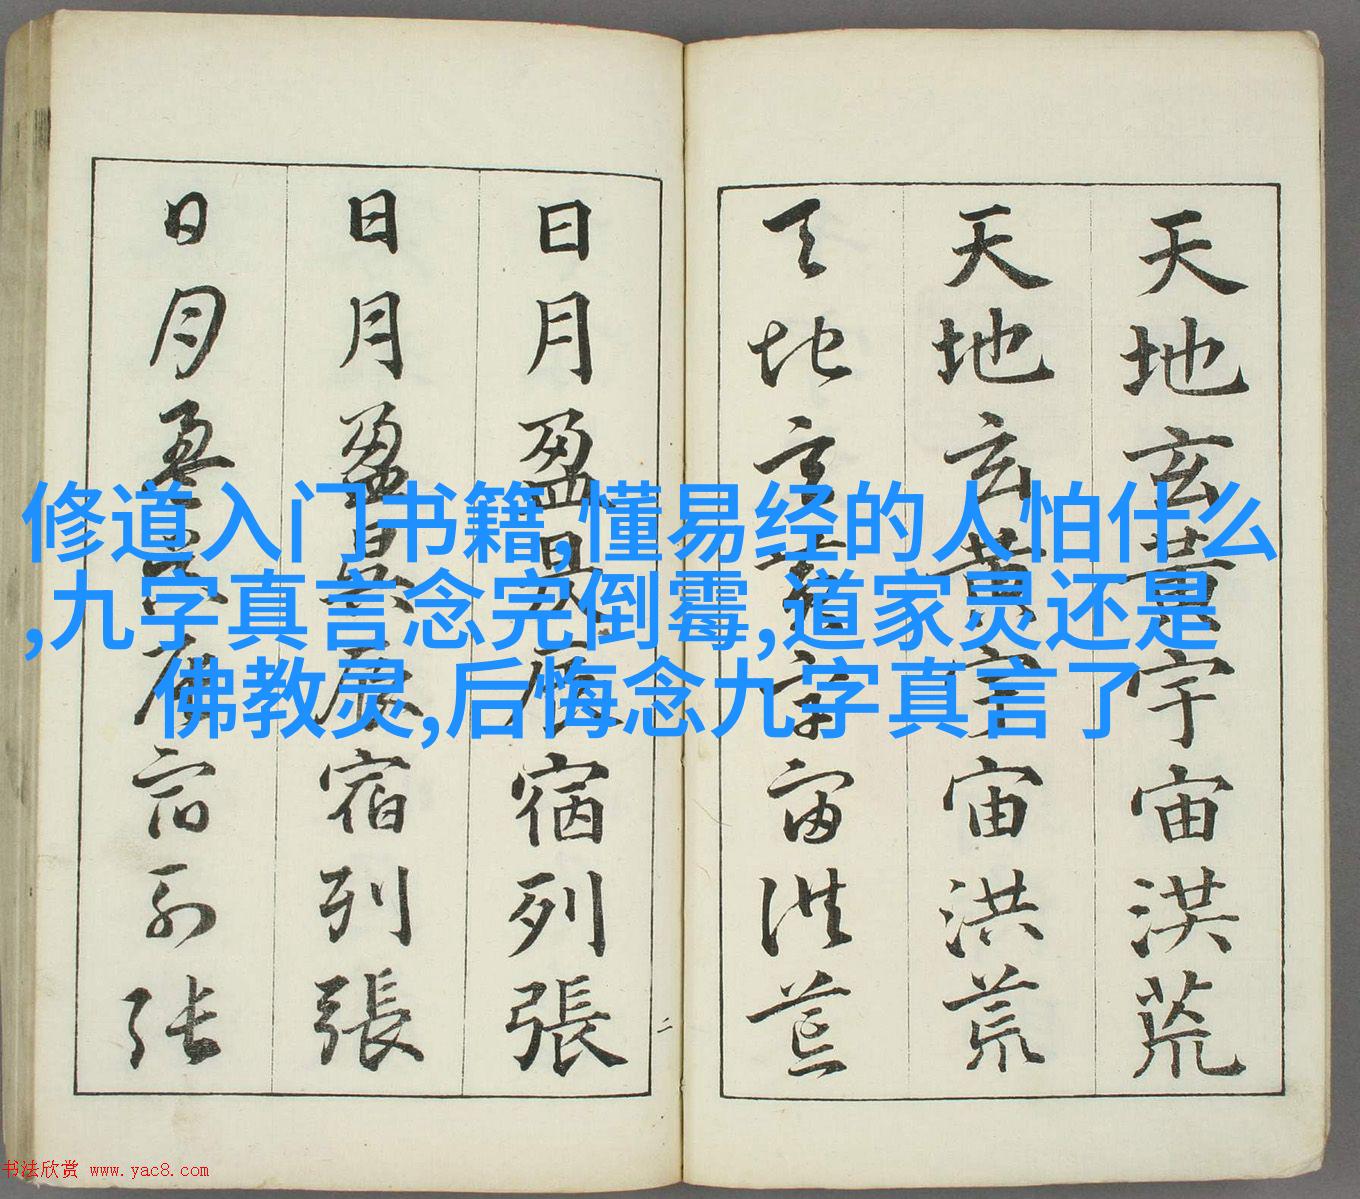 天地玄黄宇宙洪荒
天地玄黄宇宙洪荒
天地玄黄宇宙洪荒
日月盈昃辰宿列張
日月盈昃辰宿列張
日月盈昃辰宿列张
二
修道入门书籍,懂易经的人怕什么
,九字真言念完倒霉,道家灵还是
佛教灵,后悔念九字真言了
书法欣赏 www.yac8.com